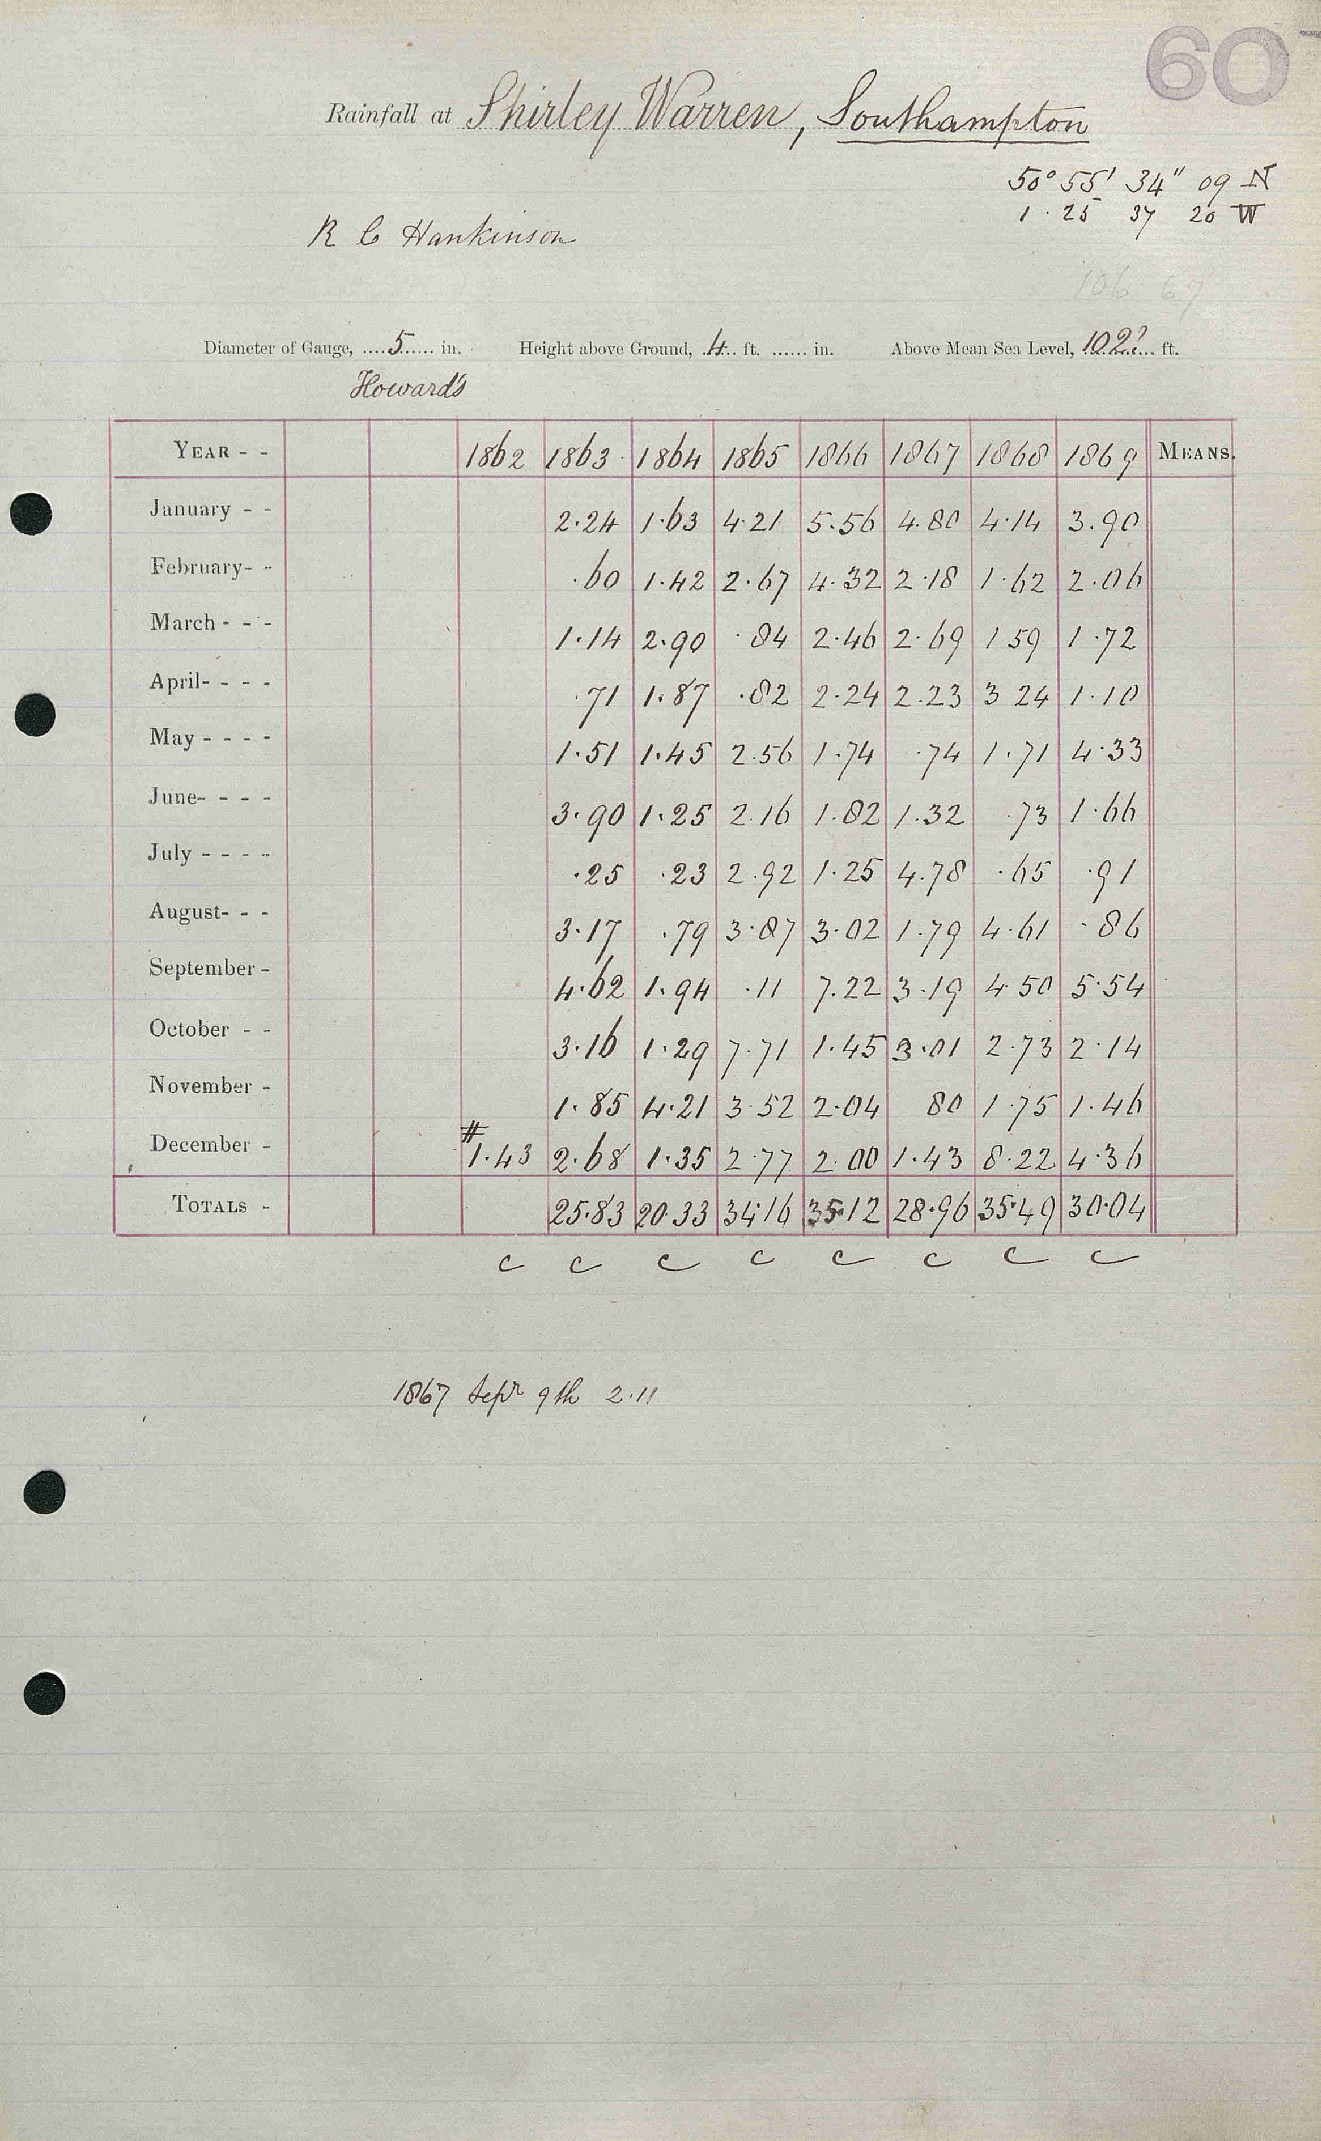 60
Rainfall at Shirley Warren, Southampton
50° 55' 34" 09 N
1 · 25 37 20 W
R C Hankinson
106 67
Diameter of Gauge, ....5...... in. Height above Ground, ..4... ft. ...... in. Above Mean Sea Level, 102?... ft.
Howard's
YEAR - - 1862 1863 1864 1865 1866 1867 1868 1869 MEANS.
January - - 2·24 1·63 4·21 5·56 4·80 4·14 3·90
February- - ·60 1·42 2·67 4·32 2·18 1·62 2·06
March - - - 1·14 2·90 ·84 2·46 2·69 1 59 1·72
April- - - - ·71 1·87 ·82 2·24 2·23 3 24 1·10
May - - - - 1·51 1·45 2·56 1·74 ·74 1·71 4·33
June- - - - 3·90 1·25 2·16 1·82 1·32 ·73 1·66
July - - - - ·25 ·23 2·92 1·25 4·78 ·65 ·91
August- - - 3·17 ·79 3·87 3·02 1·79 4·61 ·86
September - 4·62 1·94 ·11 7·22 3·19 4 50 5·54
October - - 3·16 1·29 7·71 1·45 3·01 2·73 2·14
November - 1·85 4·21 3·52 2·04 80 1·75 1·46
December - #1·43 2·68 1·35 2·77 2·00 1·43 8·22 4·36
TOTALS - 25·83 20·33 34·16 35·12 28·96 35·49 30·04
c c c c c c c c
1867 Sepr 9th 2·11